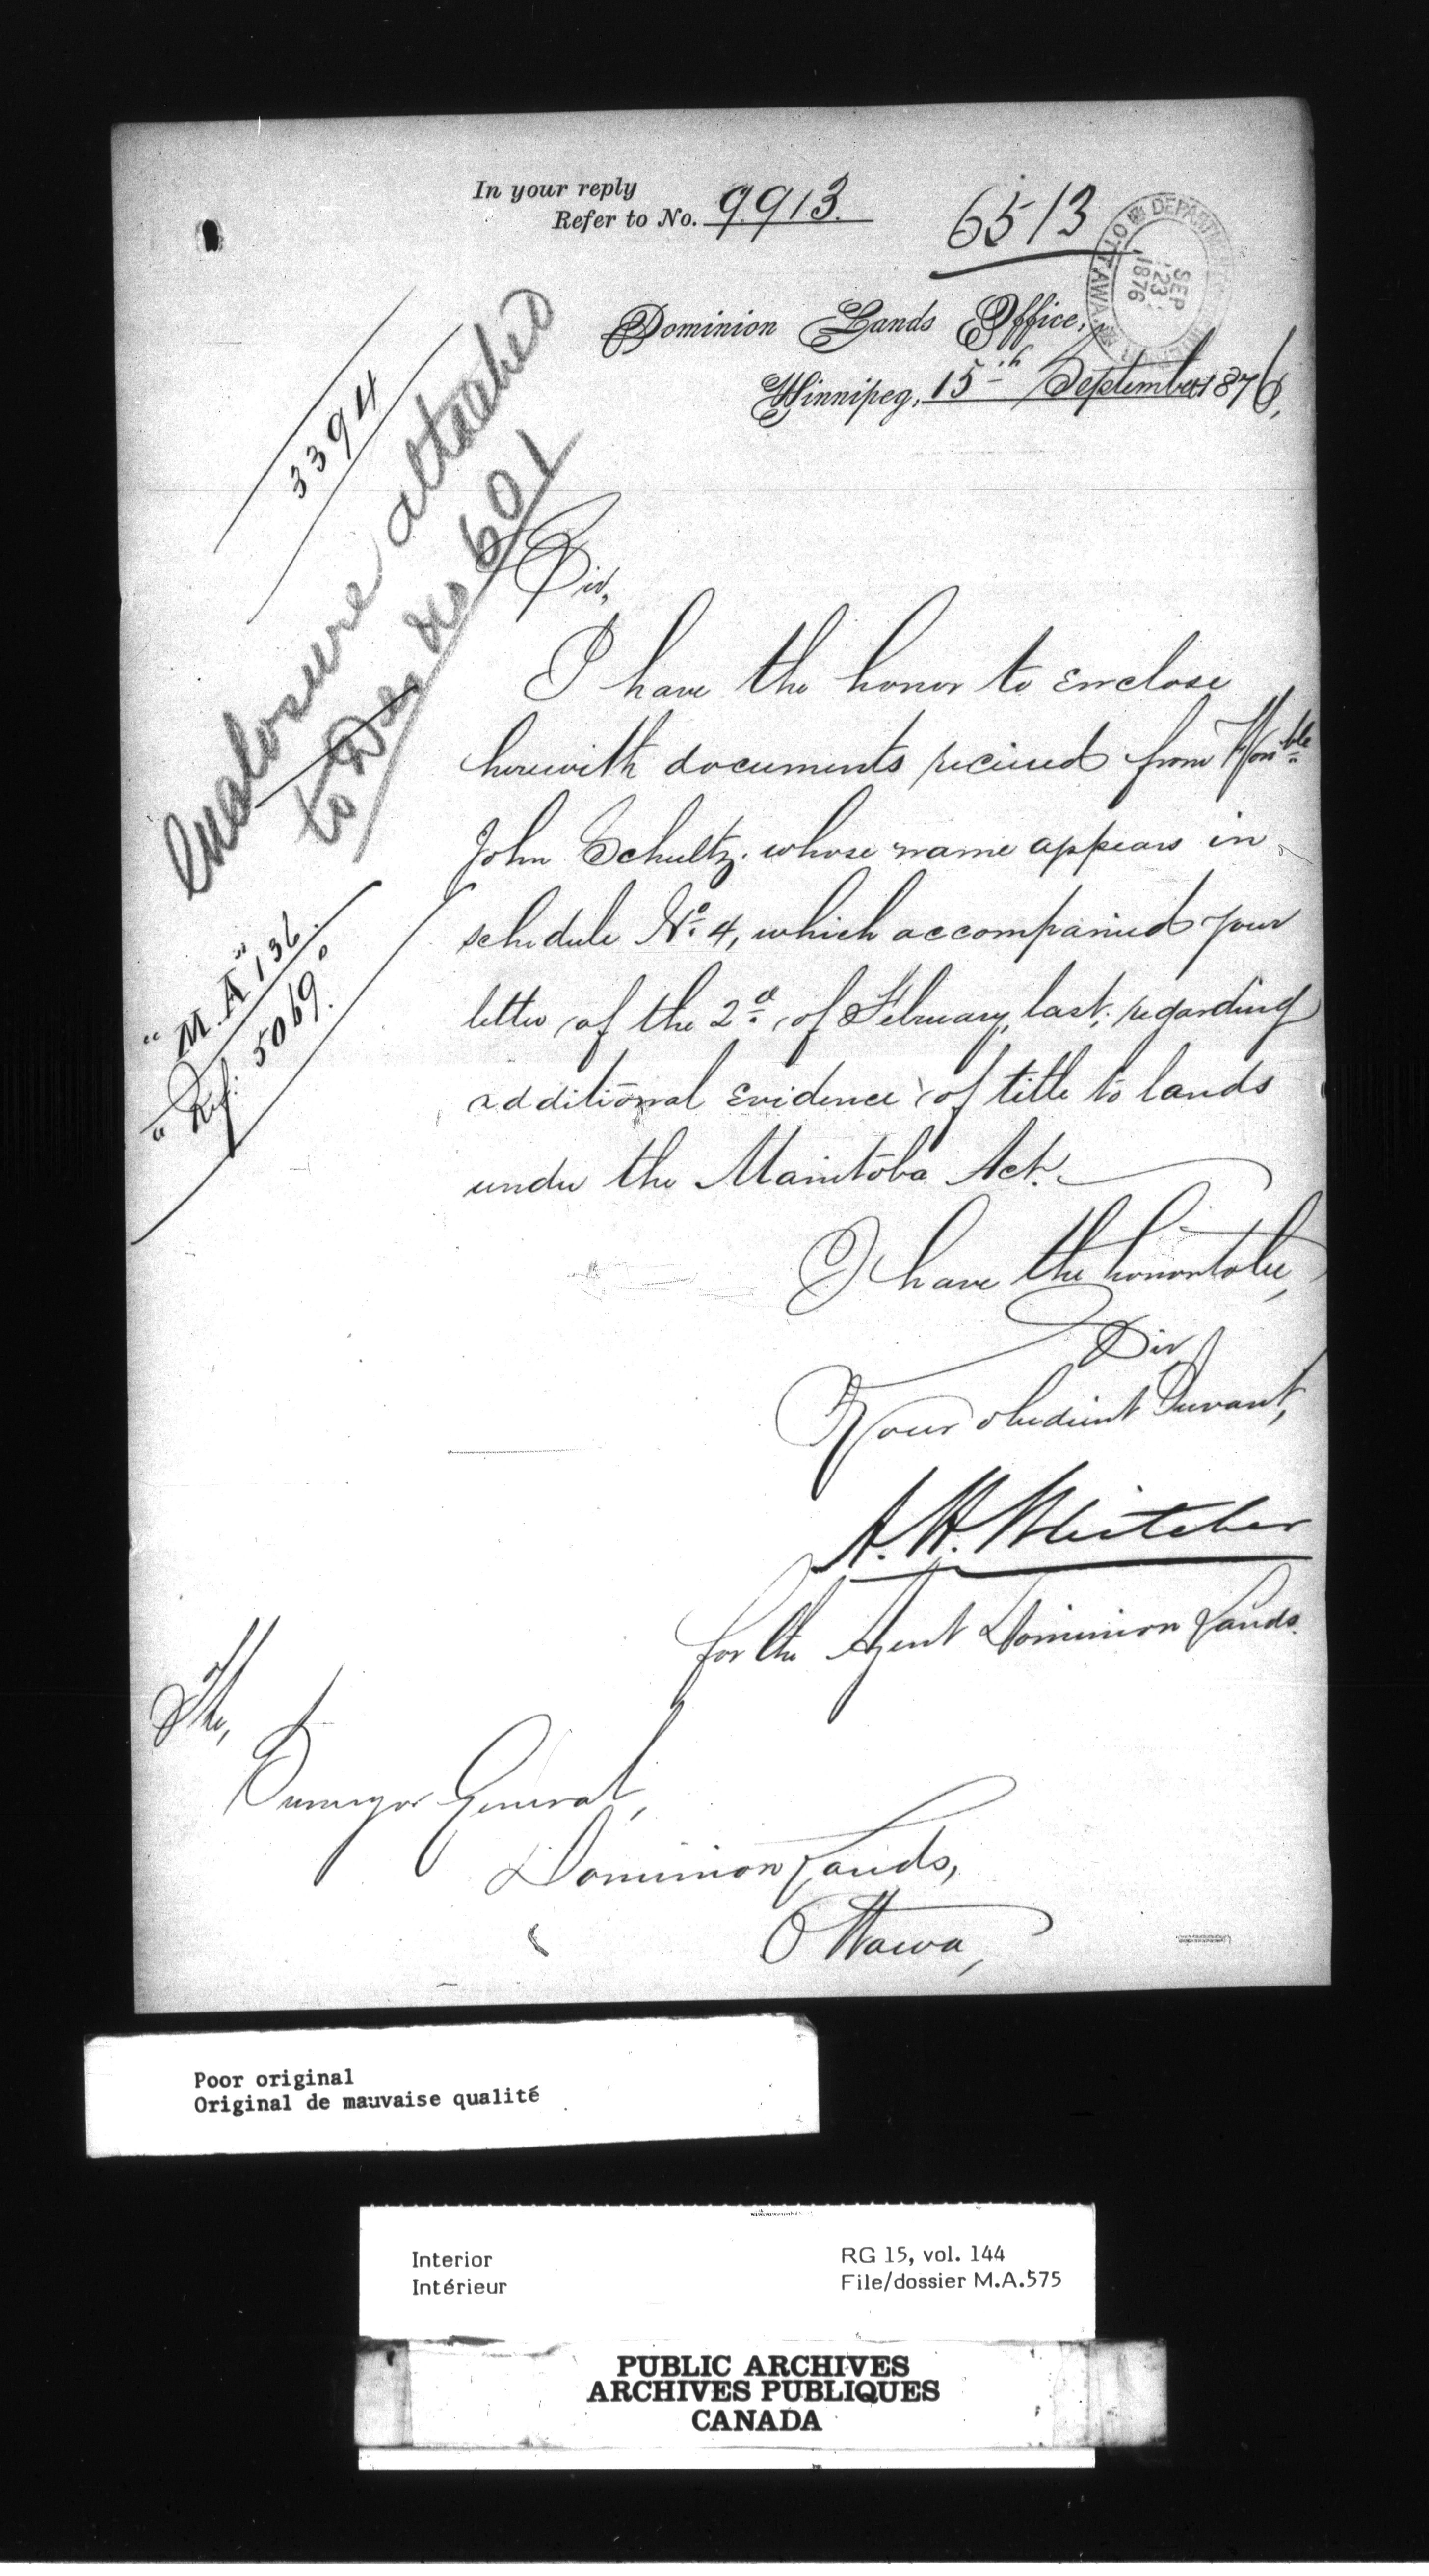 In your reply
Refer to No. 9913.
6513
DEPARTMENT OTTAWA
SEP
23
1876
Dominion Lands Office,
Winnipeg, 15th September 1876,
3394
Enclosure attached
to Des no 601
"M.A" 136.
"Ref: 5069."
Sir,
I have the honor to enclose
herewith documents recieved from Honble
John Schultz. whose name appears in
schedule No. 4, which accompanied your
letter of the 2d of February, last, regarding
additional evidence of title to lands
under the Manitoba Act.
I have the honor to be,
Sir,
Your obedient Servant,
A. H. Whitcher
for the Agent Dominion Lands.
The,
Surveyor General,
Dominion Lands,
Ottawa,
Poor original
Original de mauvaise qualité
Interior
Intérieur
RG 15, vol. 144
File/dossier M.A.575
PUBLIC ARCHIVES
ARCHIVES PUBLIQUES
CANADA